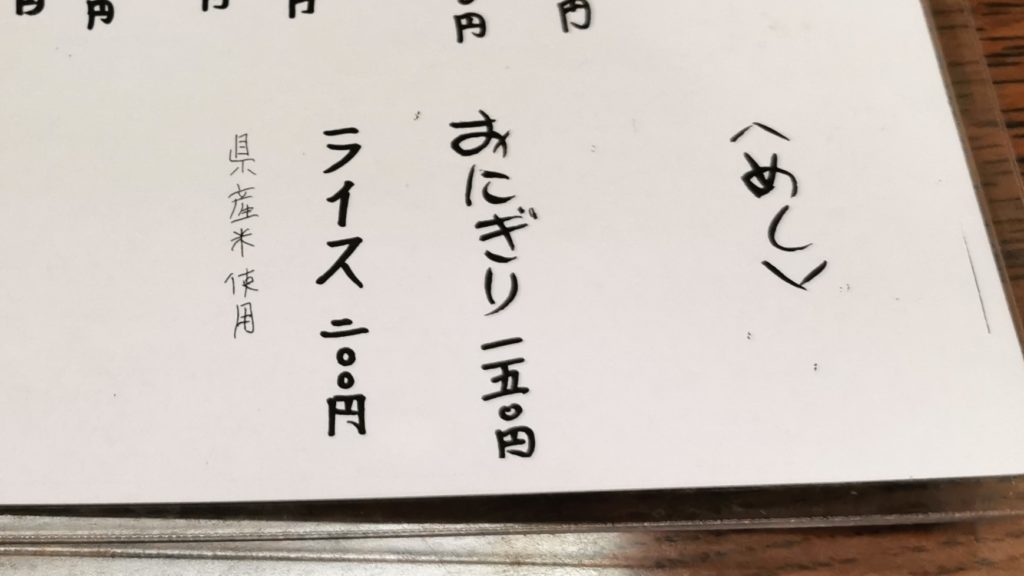 〈めし〉
おにぎり 一五〇円
ライス 二〇〇円
県産米使用
円
円
円
円